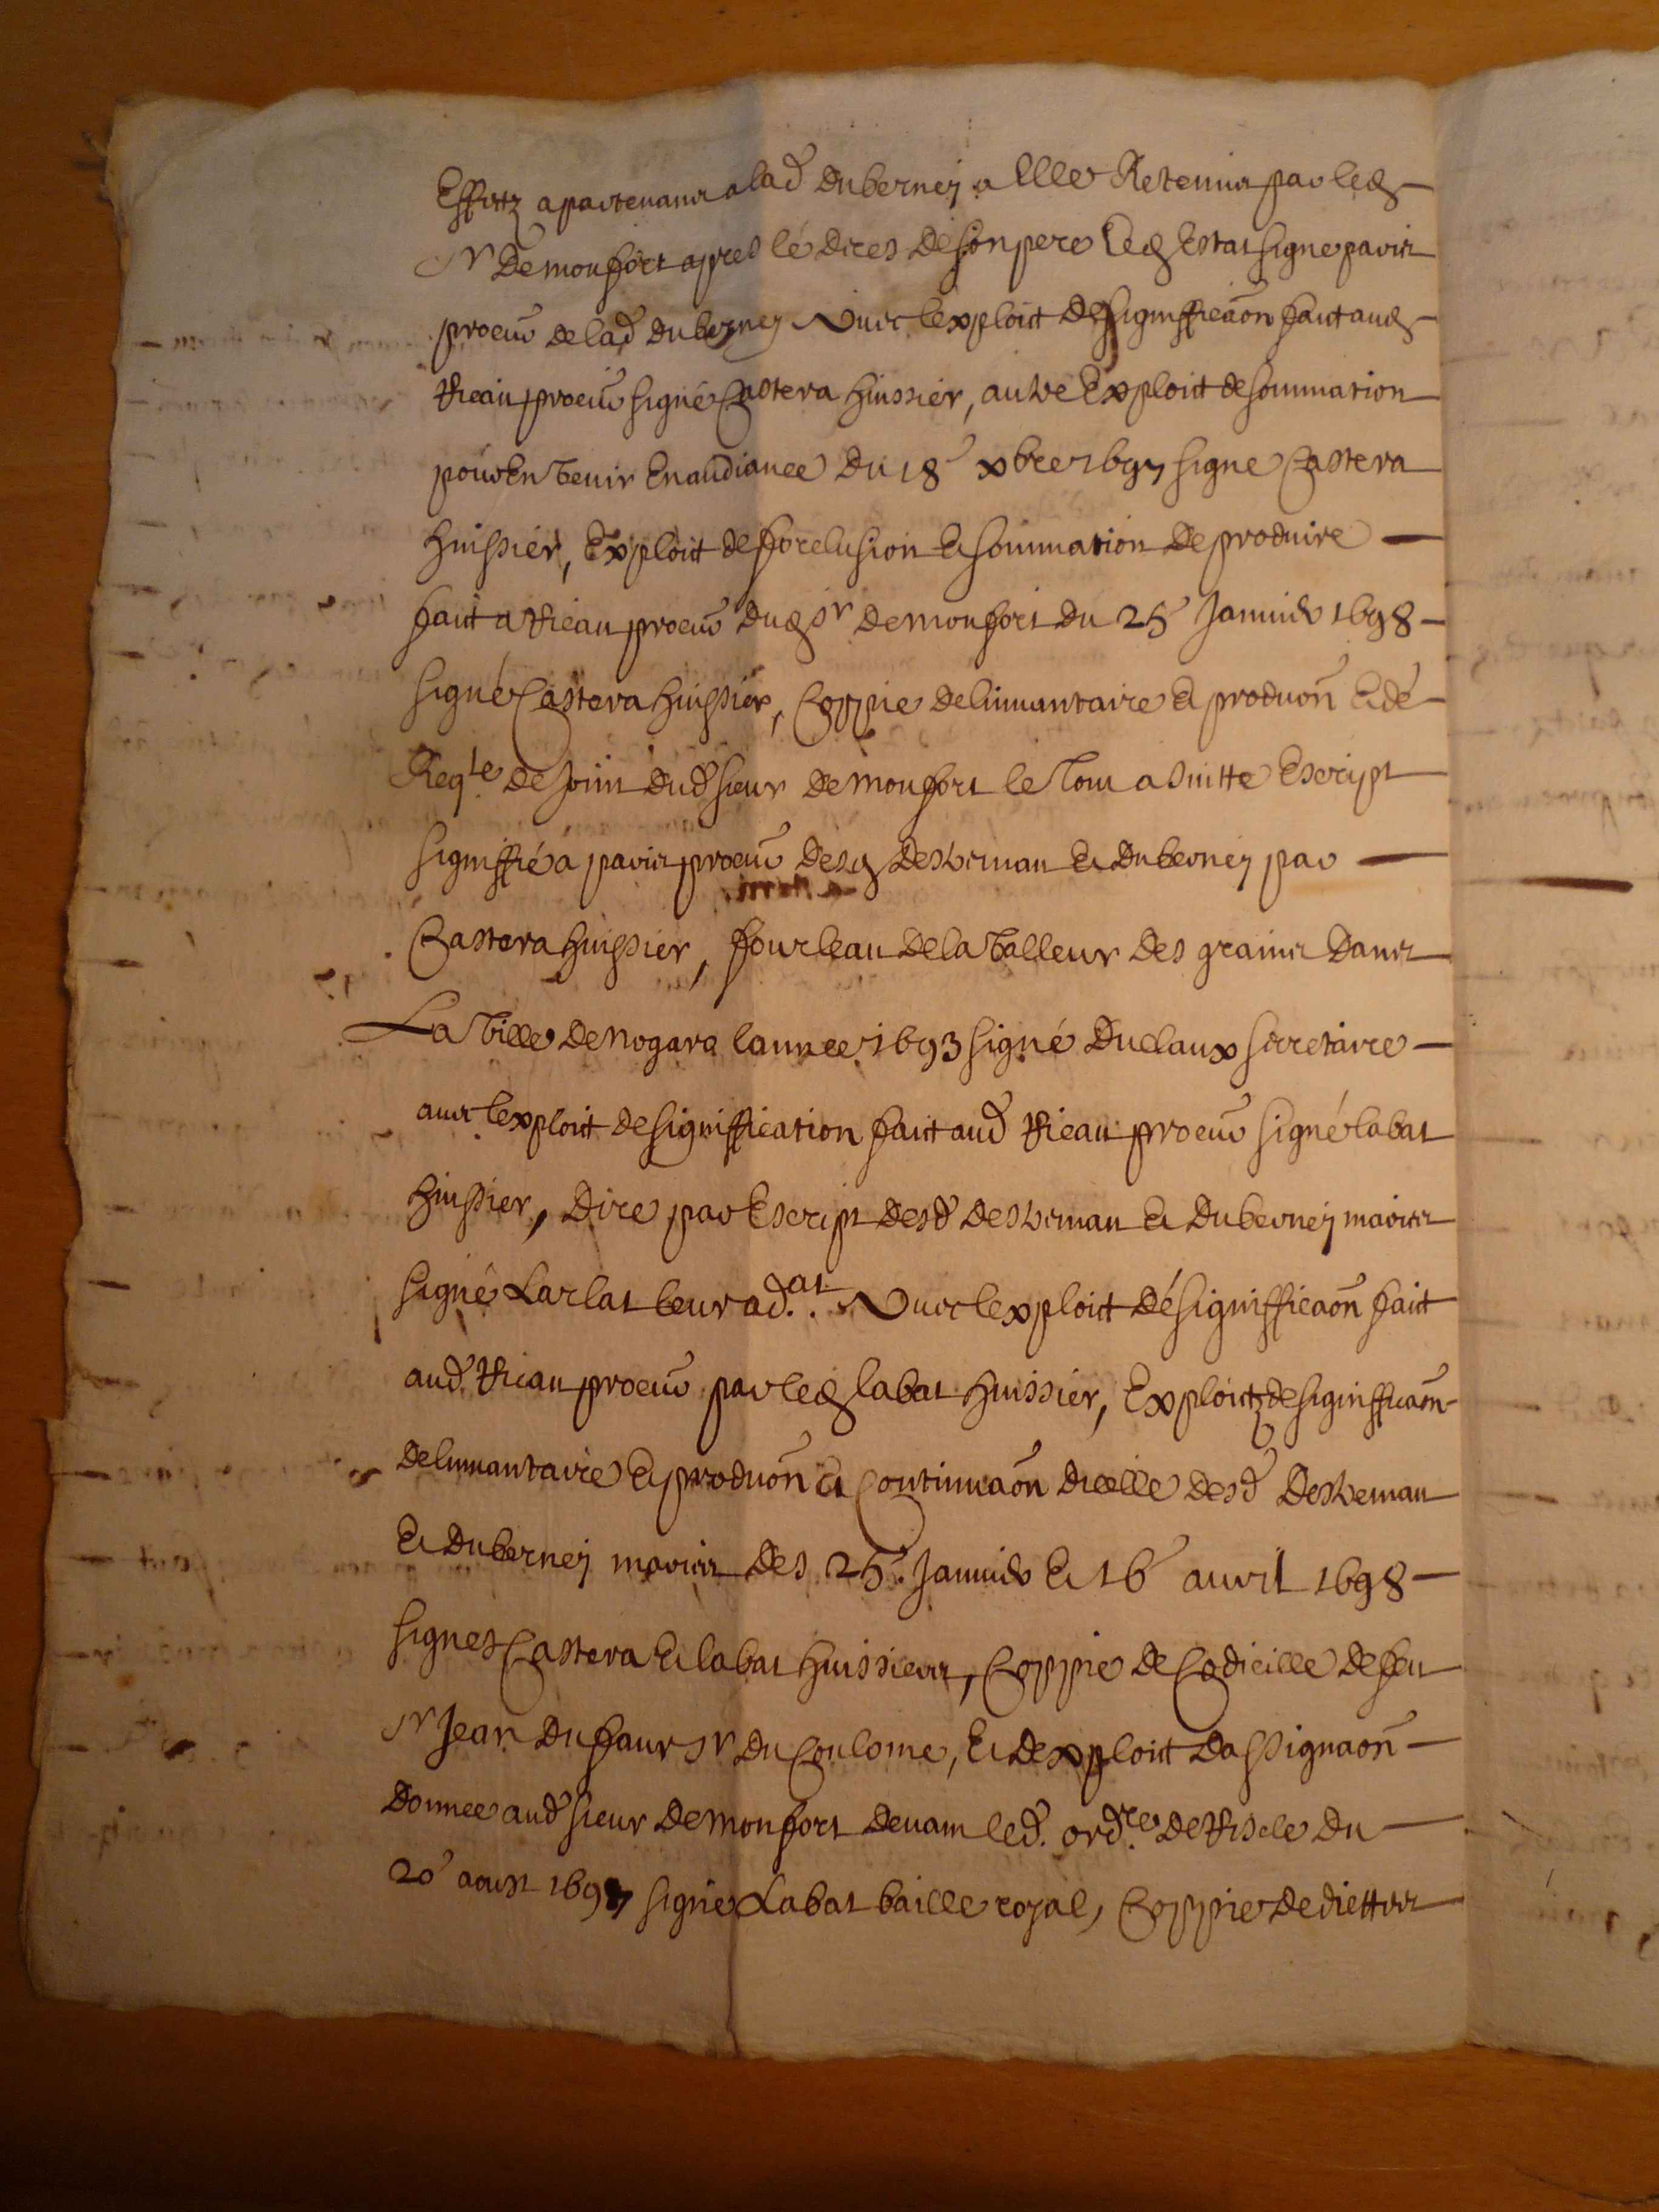 Effaitz apartenant a lad duberney a elle Retenus par led
Sr Demonfort apres lé dices de son pere led Estat signe paris
procur de lad duberney Avec lexploit de signifficaon fait aud
Rieau procur signé Castera huissier, autre Exploit de sommation
pour En venir En audiance du 18e xbre 1697 signe Castera
huissier, Exploit de forclusion Et sommation de produire
fait a Rieau procur dud Sr Demonfort du 25e Januier 1698
signé Castera huissier, Coppie delinuantaire Et produon Et dé
Reqte de joint dud sieur Demonfort le tout a suitte Escript
signiffié a paris procur desd Destreman Et duberney par
Castera huissier, fourleau de la Valleur des grains dans
La Ville de nogaro lannee 1693 signé Duclaux secretaire
auec lexploit de signiffication fait aud Rieau procur signé labat
huissier, Dire par Escript desd Destreman Et duberney maries
signé Larlat leur ad.at Avec lexploit dé signifficaon fait
aud Rieau procur par led labat huissier, Exploitz de signifficaon
delinuantaire Et produon Et Continuaon dicelle desd Destreman
Et duberney maries des 25e Januier Et 16e auril 1698
signes Castera Et labat huissiers, Coppie de Codicille de feu
Sr Jean Dufaur Sr du Coulome, Et dexploit dassignaon
donnee aud sieur Demonfort deuant led. ordre de Riscle du
20e aoust 1697 signé Labat baille royal, Coppie de diettes